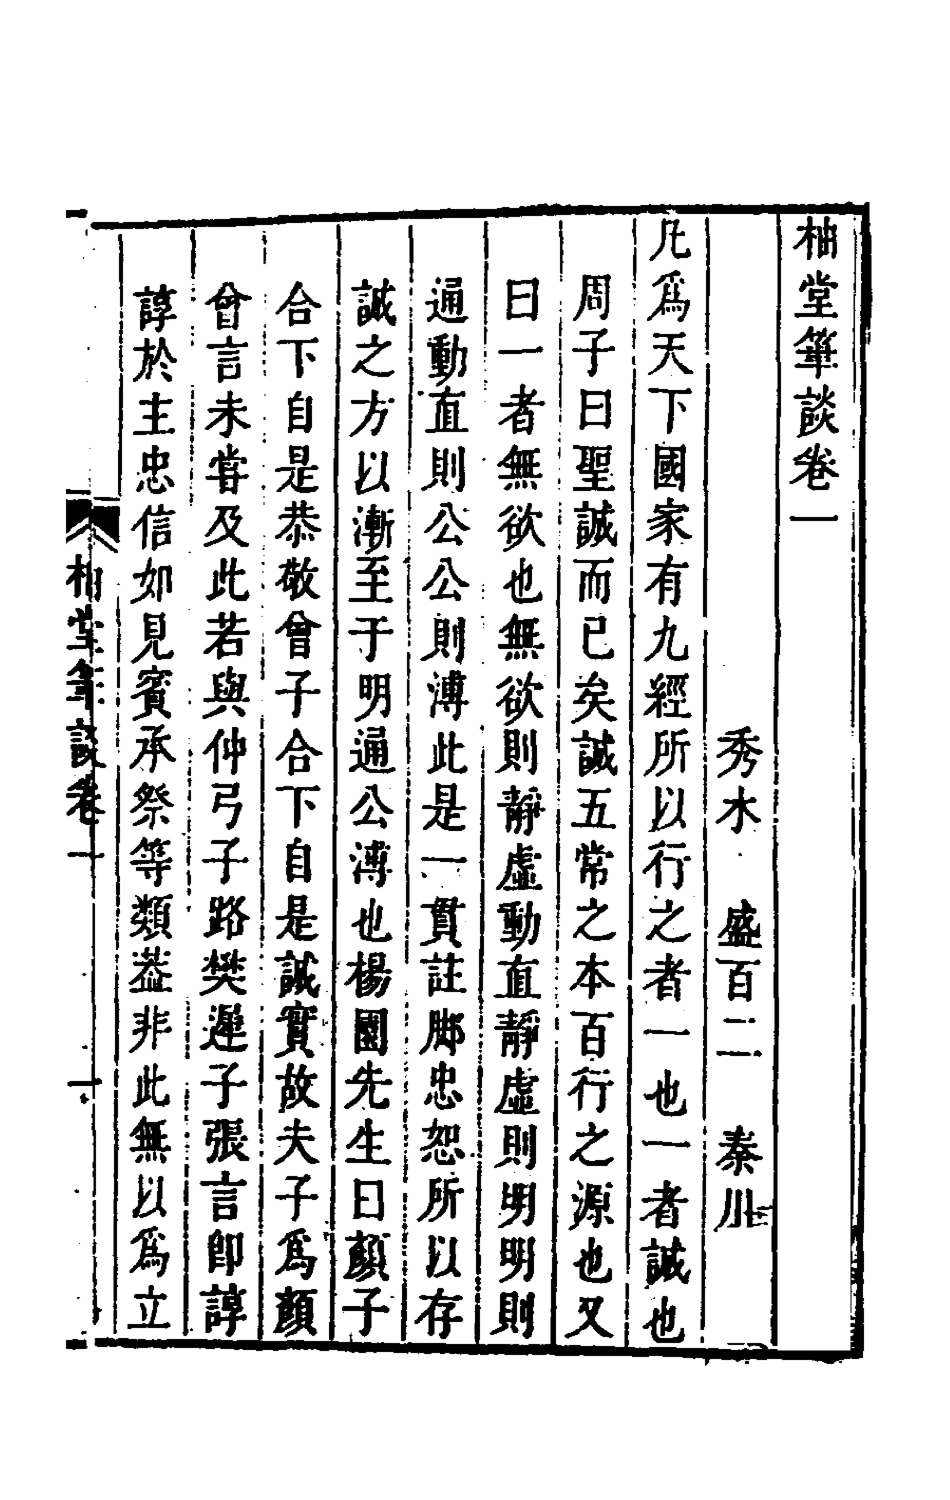 柚堂筆談卷一
秀水 盛百二 秦川
凡爲天下國家有九經所以行之者一也一者誠也
周子曰聖誠而已矣誠五常之本百行之源也又
曰一者無欲也無欲則靜虛動直靜虛則明明則
通動直則公公則溥此是一貫註脚忠恕所以存
誠之方以漸至于明通公溥也楊園先生曰顏子
合下自是恭敬曾子合下自是誠實故夫子爲顏
曾言未甞及此若與仲弓子路樊遲子張言卽諄
諄於主忠信如見賓承祭等類葢非此無以爲立
柚堂筆談卷一
一